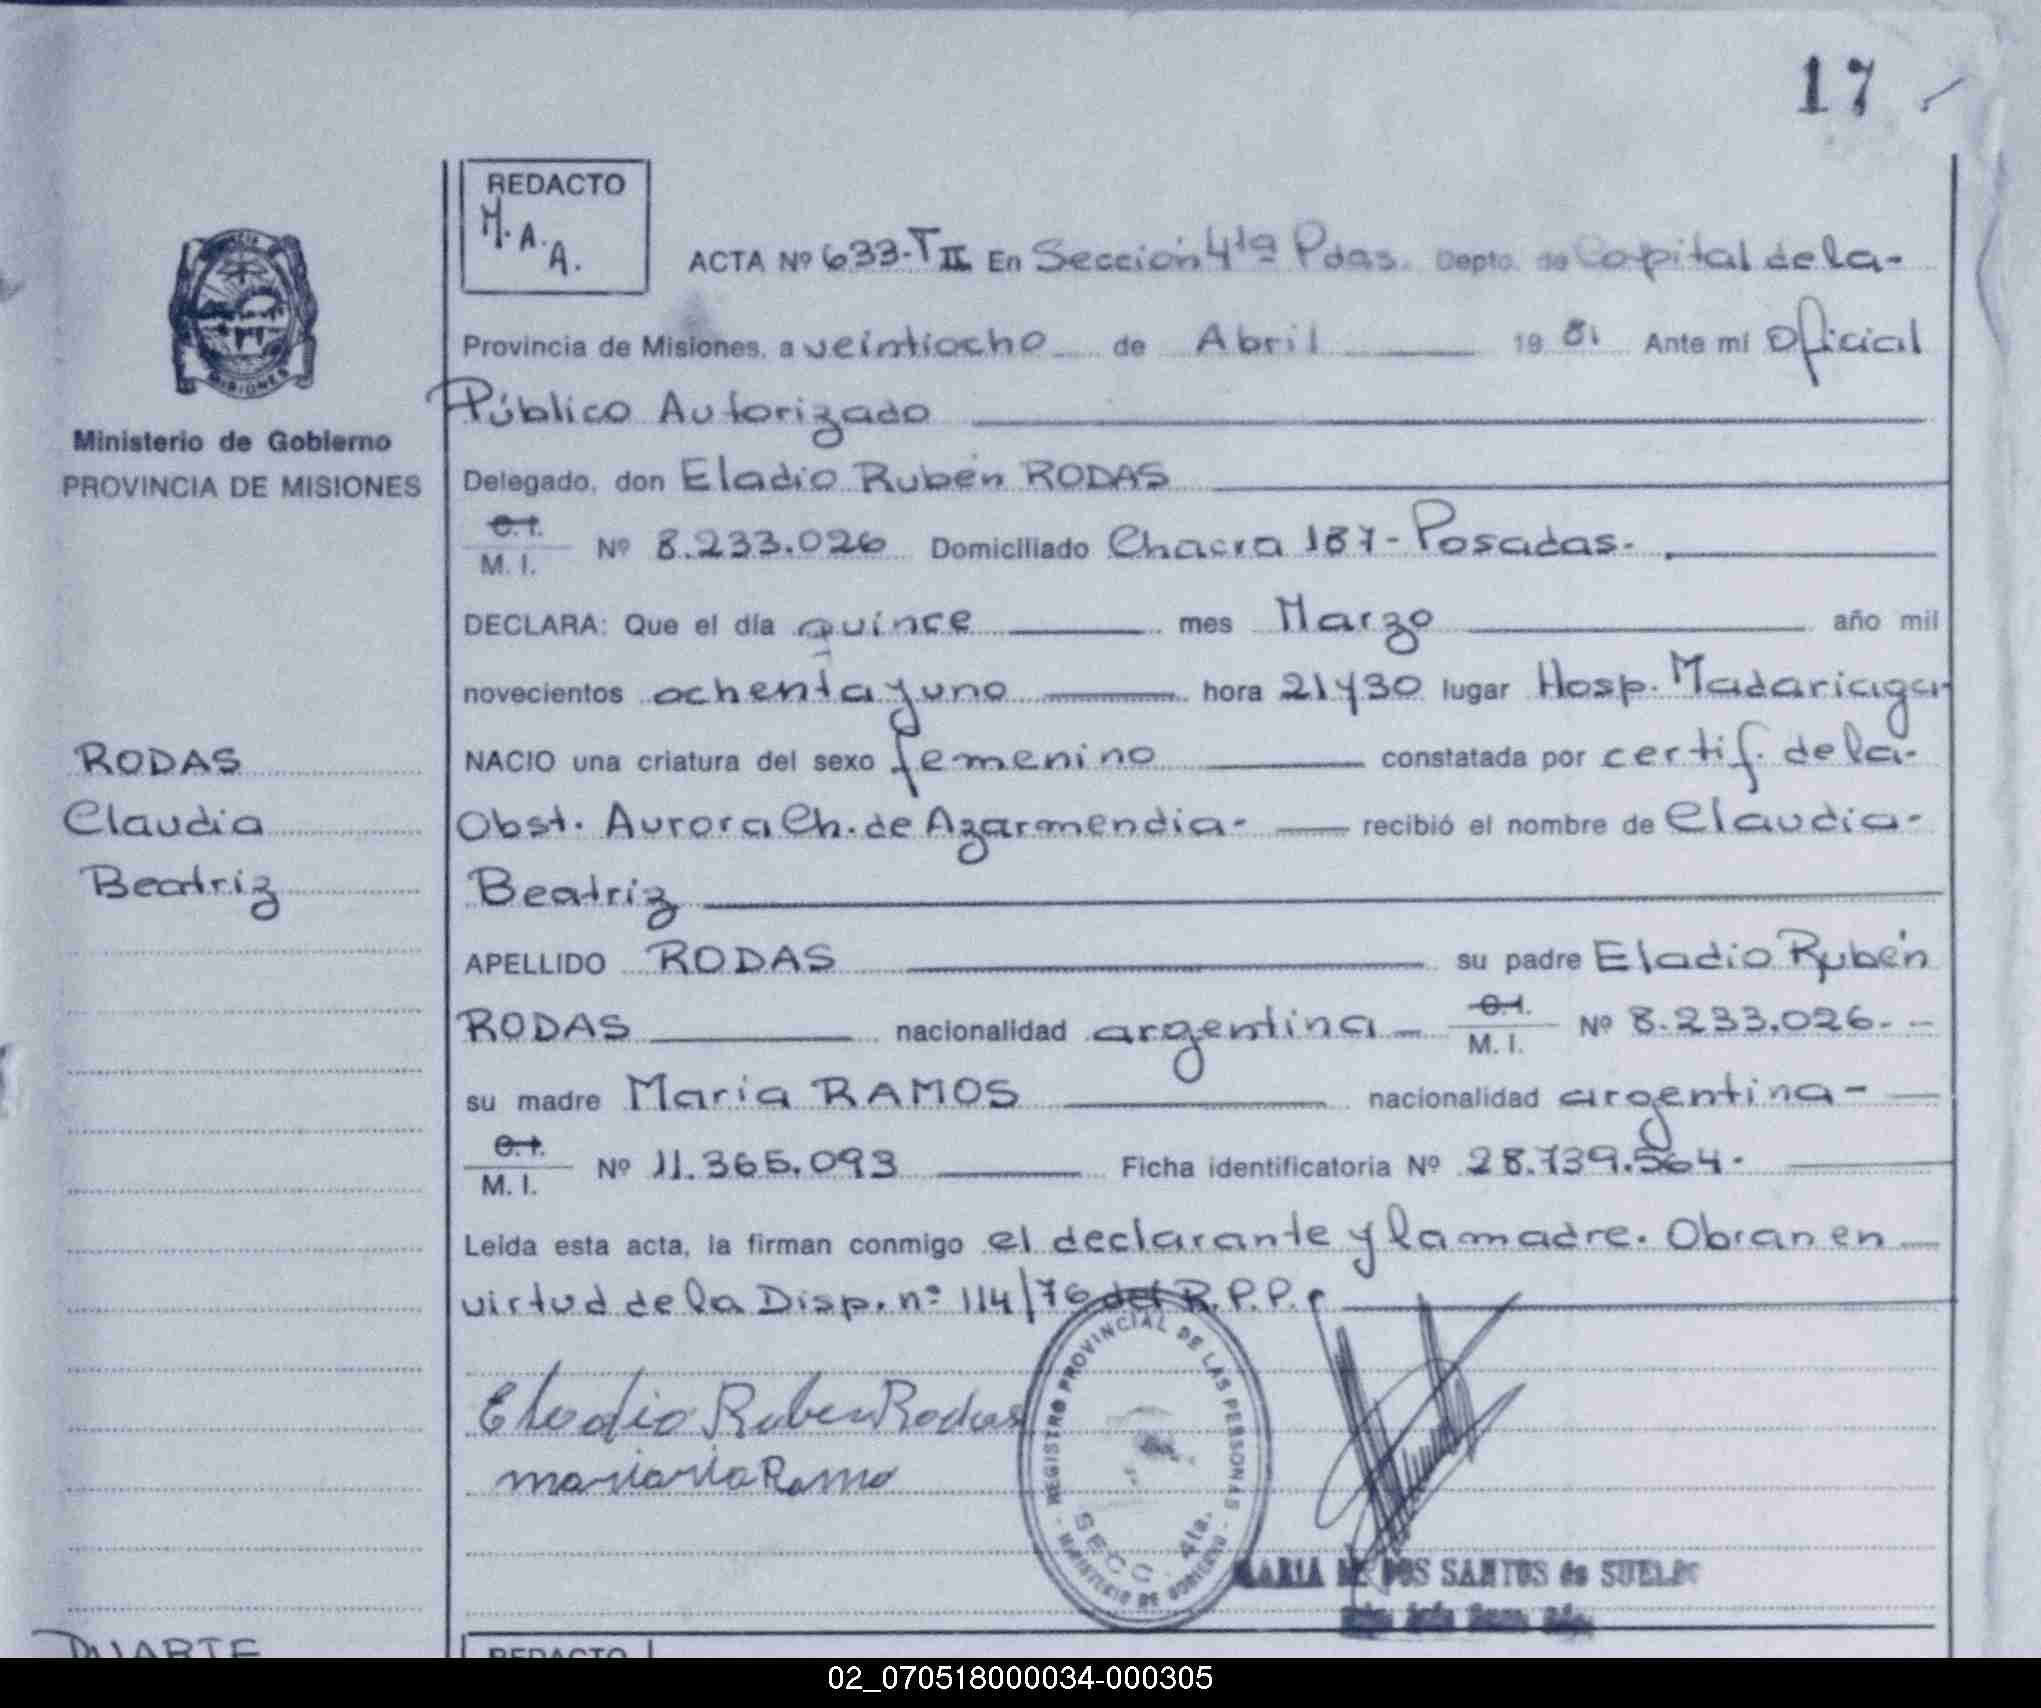 17
REDACTO
M.A.A.
ACTA Nº 633-TII En Sección 4ta Pdas. Depto. de Capital de la-
Provincia de Misiones, a veintiocho de Abril 19 81 Ante mi Oficial
Público Autorizado
Ministerio de Gobierno
PROVINCIA DE MISIONES
Delegado, don Eladio Rubén RODAS
C.I.
M. I. Nº 8.233.026 Domiciliado Chacra 187-Posadas.
DECLARA: Que el día quince mes Marzo año mil
novecientos ochenta y uno hora 21y30 lugar Hosp. Madariaga-
RODAS
Claudia
Beatriz
NACIO una criatura del sexo femenino constatada por certif. de la-
Obst. Aurora Ch. de Azarmendia- recibió el nombre de Claudia-
Beatriz
APELLIDO RODAS su padre Eladio Rubén
RODAS nacionalidad argentina - C.I. M. I. Nº 8.233.026.-
su madre Maria RAMOS nacionalidad argentina-
C.I.
M. I. Nº 11.365.093 Ficha identificatoria Nº 28.739.564.
Leida esta acta, la firman conmigo el declarante y la madre. Obran en
virtud de la Disp. nº 114/76 del R.P.P.
Eladio Ruben Rodas
REGISTRO PROVINCIAL DE LAS PERSONAS
SECC. 4ta.
MINISTERIO DE GOBIERNO
MARIA DE DOS SANTOS de
DUARTE
REDACTO
02_070518000034-000305